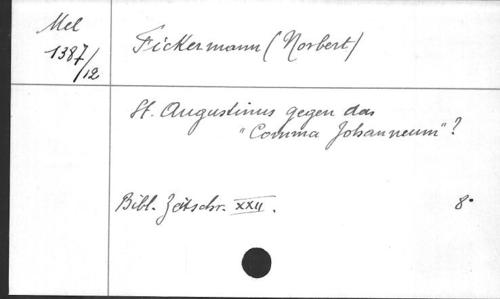 Mel
1387/12
Fickermann (Norbert)
St. Augustinus gegen das
"Comma Johanneum"?
Bibl. Zeitschr. XXII. 8°